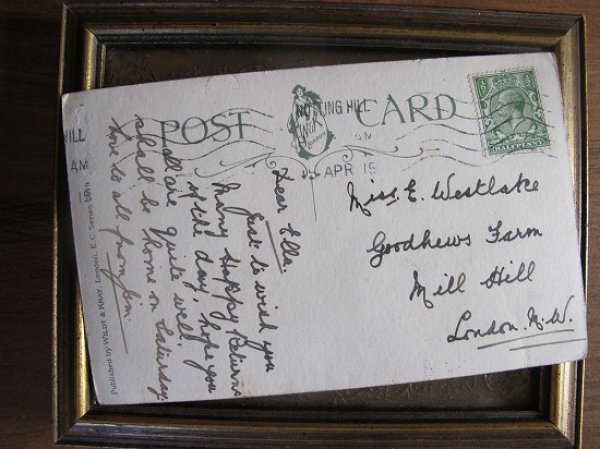 NOTTING HILL
POST CARD
HILL
AM
1
AM
APR 15
HALFPENNY
Dear Ella.
Just to wish you
many Happy Returns
of the day, hope you
all are quite well.
shall be home on Saturday.
love to all from
Miss. E. Westlake
Goodhews Farm
Mill Hill
London. N.W.
Published by WILDT & KRAY, London, E.C. Series